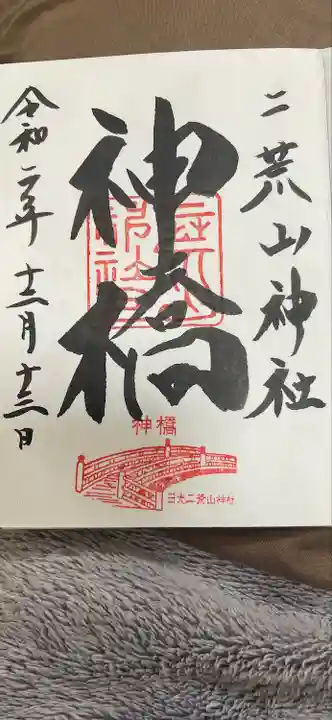 二荒山神社
神橋
令和二年十二月十三日
神橋
日光二荒山神社